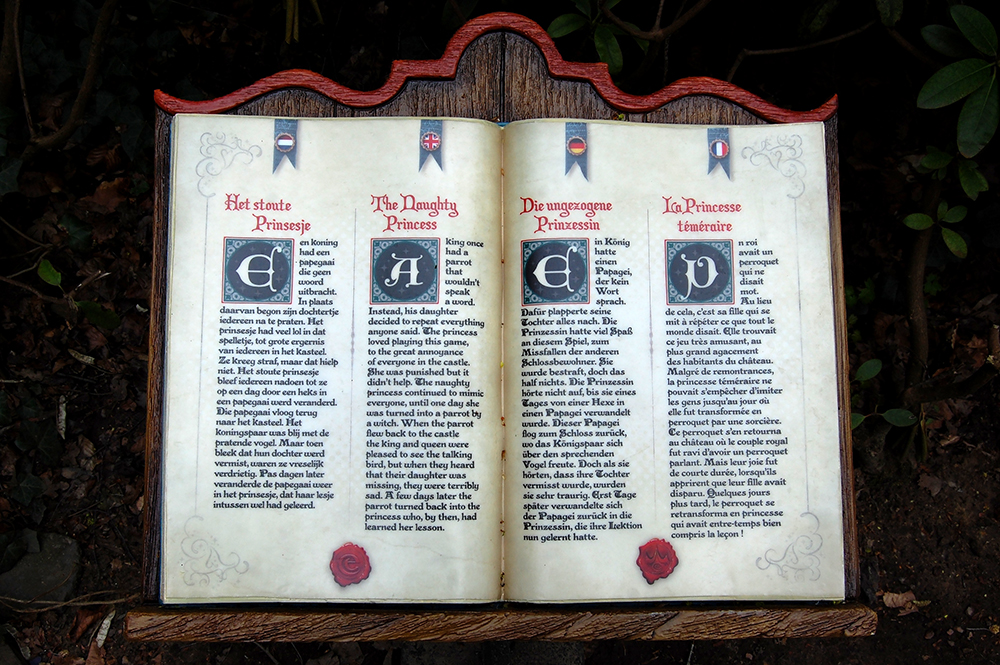 Het stoute
Prinsesje
Een koning
had een
papegaai
die geen
woord
uitbracht.
In plaats
daarvan begon zijn dochtertje
iedereen na te praten. Het
prinsesje had veel lol in dat
spelletje, tot grote ergernis
van iedereen in het kasteel.
Ze kreeg straf, maar dat hielp
niet. Het stoute prinsesje
bleef iedereen nadoen tot ze
op een dag door een heks in
een papegaai werd veranderd.
Die papegaai vloog terug
naar het kasteel. Het
koningspaar was blij met de
pratende vogel. Maar toen
bleek dat hun dochter werd
vermist, waren ze vreselijk
verdrietig. Pas dagen later
veranderde de papegaai weer
in het prinsesje, dat haar lesje
intussen wel had geleerd.
The Naughty
Princess
A king once
had a
parrot
that
wouldn't
speak
a word.
Instead, his daughter
decided to repeat everything
anyone said. The princess
loved playing this game,
to the great annoyance
of everyone in the castle.
She was punished but it
didn't help. The naughty
princess continued to mimic
everyone, until one day she
was turned into a parrot by
a witch. When the parrot
flew back to the castle
the king and queen were
pleased to see the talking
bird, but when they heard
that their daughter was
missing, they were terribly
sad. A few days later the
parrot turned back into the
princess who, by then, had
learned her lesson.
Die ungezogene
Prinzessin
Ein König
hatte
einen
Papagei,
der kein
Wort
sprach.
Dafür plapperte seine
Tochter alles nach. Die
Prinzessin hatte viel Spaß
an diesem Spiel, zum
Missfallen der anderen
Schlossbewohner. Sie
wurde bestraft, doch das
half nichts. Die Prinzessin
hörte nicht auf, bis sie eines
Tages von einer Hexe in
einen Papagei verwandelt
wurde. Dieser Papagei
flog zum Schloss zurück,
wo das Königspaar sich
über den sprechenden
Vogel freute. Doch als sie
hörten, dass ihre Tochter
vermisst wurde, wurden
sie sehr traurig. Erst Tage
später verwandelte sich
der Papagei zurück in die
Prinzessin, die ihre Lektion
nun gelernt hatte.
La Princesse
téméraire
Un roi
avait un
perroquet
qui ne
disait
mot.
Au lieu
de cela, c'est sa fille qui se
mit à répéter ce que tout le
monde disait. Elle trouvait
ce jeu très amusant, au
plus grand agacement
des habitants du château.
Malgré de remontrances,
la princesse téméraire ne
pouvait s'empêcher d'imiter
les gens jusqu'au jour où
elle fut transformée en
perroquet par une sorcière.
Ce perroquet s'en retourna
au château où le couple royal
fut ravi d'avoir un perroquet
parlant. Mais leur joie fut
de courte durée, lorsqu'ils
apprirent que leur fille avait
disparu. Quelques jours
plus tard, le perroquet se
retransforma en princesse
qui avait entre-temps bien
compris la leçon !